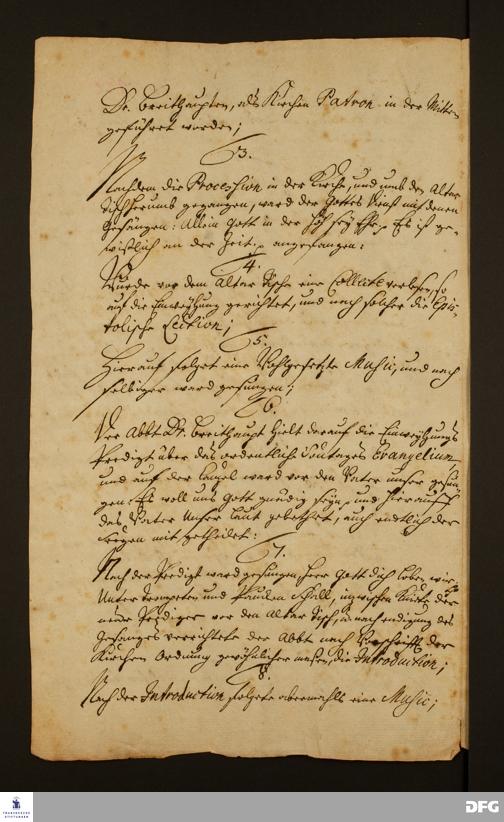 Dr. Breithaupten, als Kirchen Patron in der Mitten
geführet worden;
3.
Nachdem die Procession in der Kirche, und umb den Altar
Tisch herumb gegangen, ward der Gottes dienst mit denen
Gesängen: Allein Gott in der Höh sey Ehr, Es ist ge-
wißlich an der Zeit, angefangen:
4.
Wurde vor dem Altar Tische eine Collecte verlesen, so
auf die Einweyhung gerichtet, und nach solcher die Epis-
tolische Lection;
5.
Hierauf folget eine Wohlgesetzte Music, und nach
selbiger ward gesungen;
6.
Der Abbt Dr. Breithaupt hielt darauf die Einweyhungs
Predigt über das ordentlich Sontages Evangelium
und auf der Cantzel ward vor den Vater unser gesun
gen: Es woll uns Gott gnädig seyn, und hierauff
das Vater Unser laut gebethet, auch endtlich der
Seegen mit getheilet:
7.
Nach der Predigt ward gesungen, Herr Gott dich loben wir,
Unter Trompeten und Paucken Schall, inzwischen kniete der
neue Prediger vor den Altar Tisch, nach endigung des
Gesanges verrichtete der Abbt nach Vorschrifft der
Kirchen Ordnung gewöhnlicher masen, die Introduction;
8.
Nach der Introduction folgete abermahls eine Music;
FRANCKESCHE
STIFTUNGEN
DFG